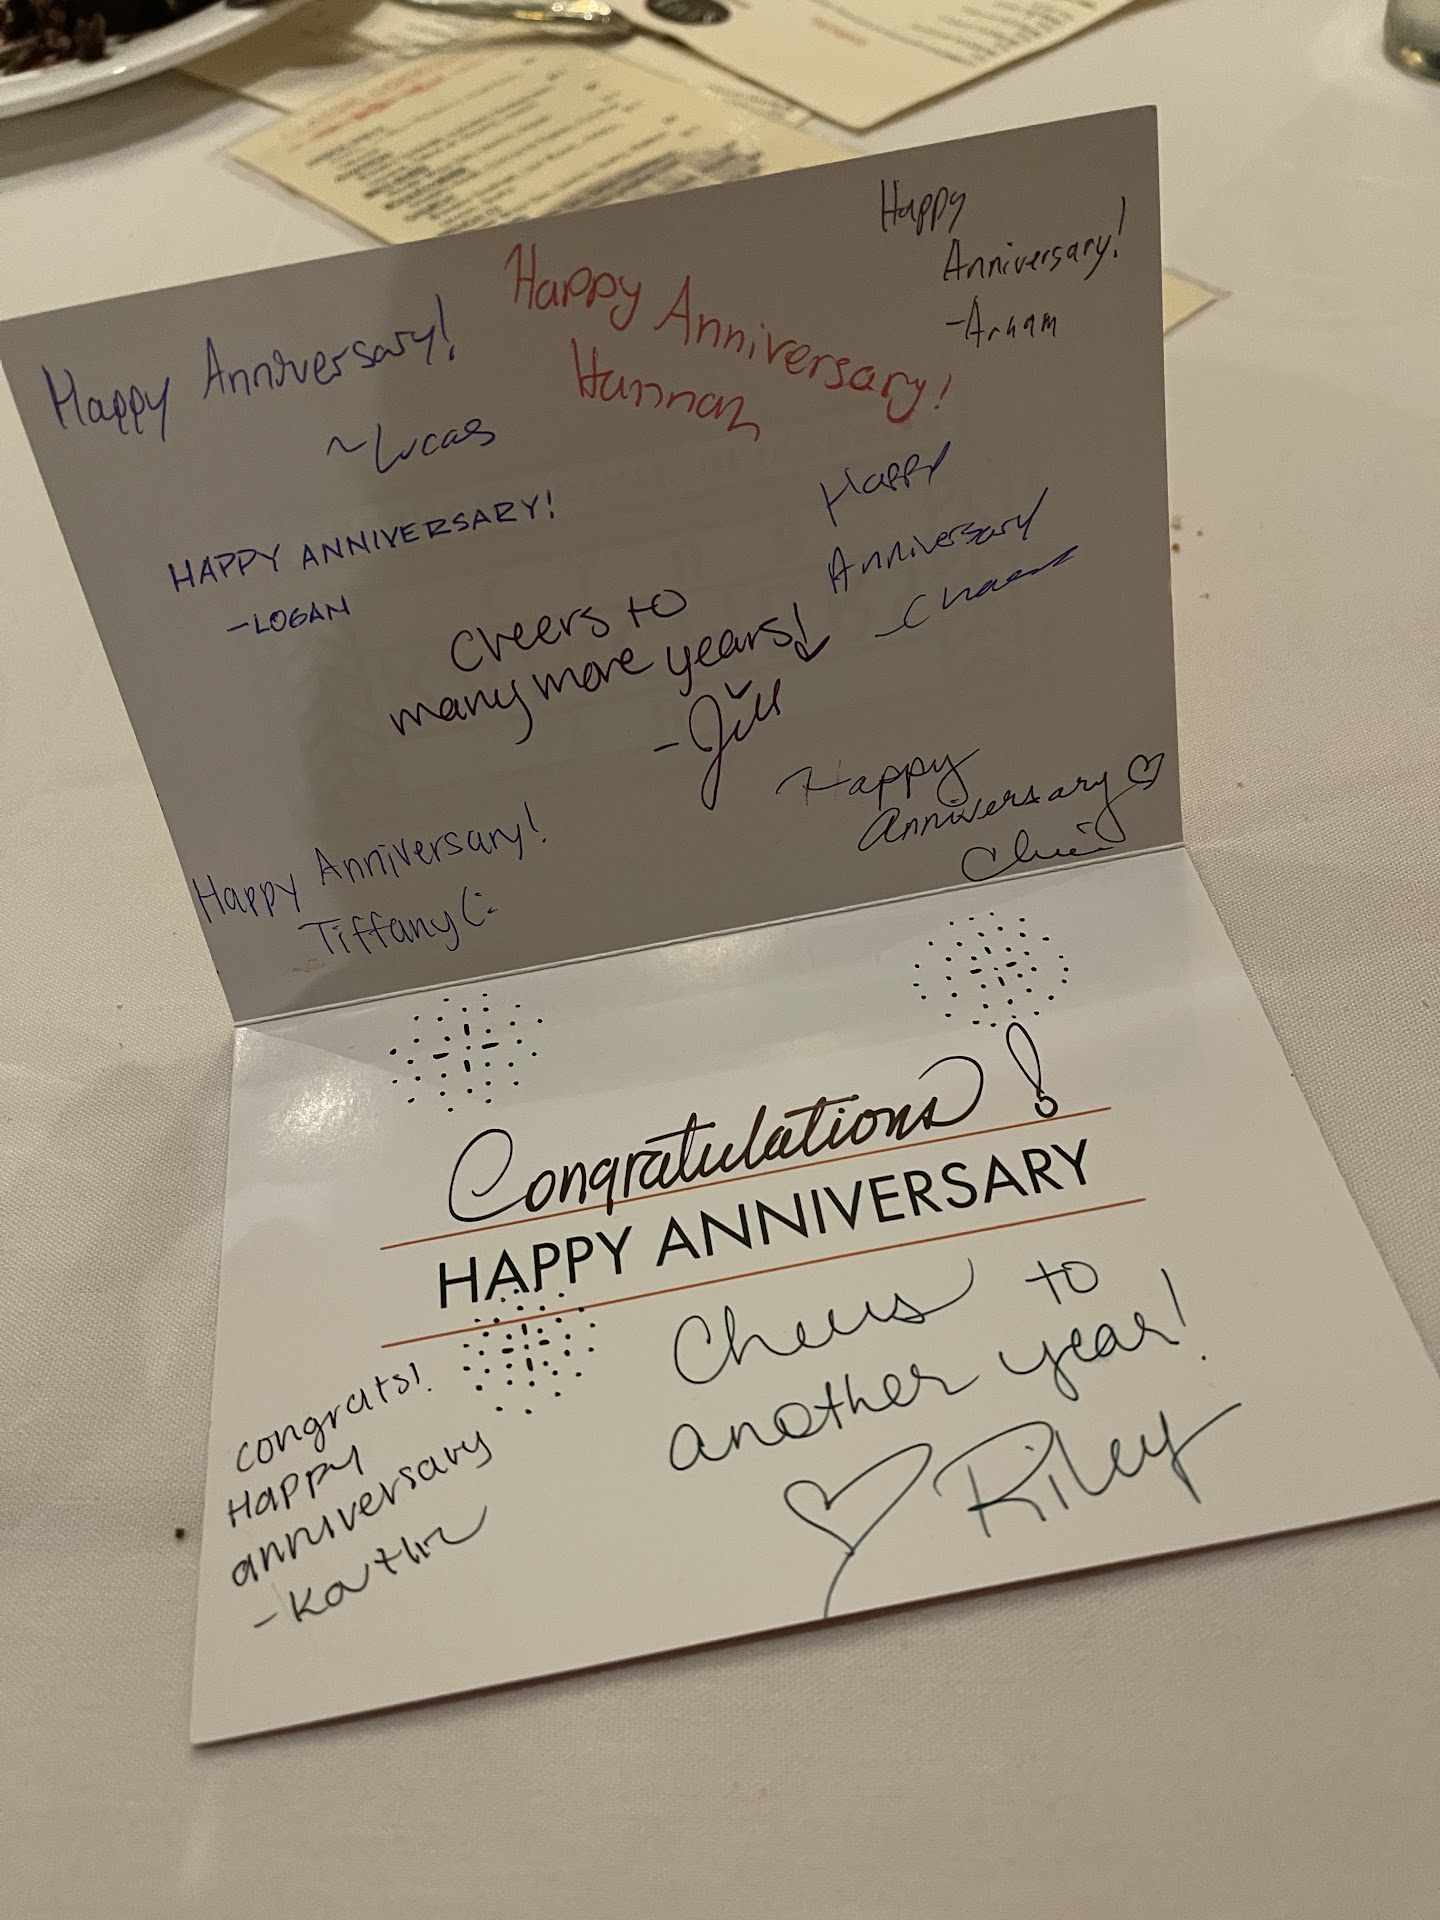 Happy Anniversary!
~Lucas
Happy Anniversary!
Hannah
Happy
Anniversary!
-Arham
HAPPY ANNIVERSARY!
-LOGAN
Happy
Anniversary
Cheers to
many more years!
-Jill
Happy
Anniversary ♡
Happy Anniversary!
Tiffany (:
Congratulations!
HAPPY ANNIVERSARY
congrats!
Happy
anniversary
-Kaitlin
Cheers to
another year!
♡ Riley